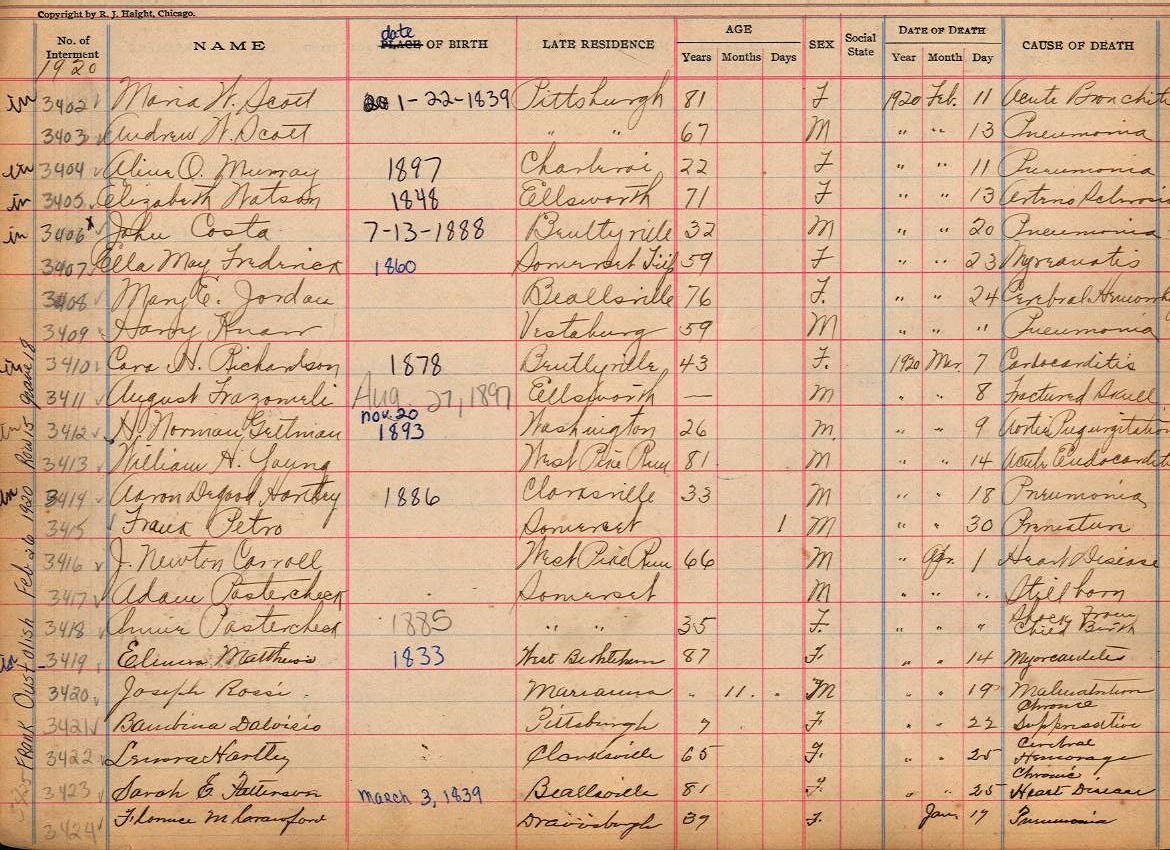 Copyright by R. J. Haight, Chicago.
No. of Interment NAME date PLACE OF BIRTH LATE RESIDENCE AGE Years Months Days SEX Social State DATE OF DEATH Year Month Day CAUSE OF DEATH
1920
in 3402 Maria W. Scott 1-22-1839 Pittsburgh 81 F 1920 Feb. 11 Acute Bronchit
3403 Andrew W. Scott " " 67 M " " 13 Pneumonia
in 3404 O. Murray 1897 Charleroi 22 F " " 11 Pneumonia
in 3405 Elizabeth Watson 1848 Ellsworth 71 F " " 13 Arterio Sclerosis
in 3406 x John Costa 7-13-1888 32 M " " 20 Pneumonia
3407 Ella May Frederick 1860 Somerset 59 F " " 23
3408 Mary E. Jordan Beallsville 76 F. " " 24 Cerebral Hemorrh
3409 Harry Knaw Vestaburg 59 M " " " Pneumonia
in 3410 Cora H. Richardson 1878 43 F. 1920 Mar. 7
3411 August Frazomeli Aug. 27, 1897 Ellsworth — M " " 8 Fractured Skull
in 3412 H. Norman Nov. 20 1893 Washington 26 M. " " 9 Aortic
3413 William H. Young West Pike Run 81 M " " 14 Acute Endocardit
in 3414 Aaron Hartley 1886 Clarksville 33 M " " 18 Pneumonia
3415 Frank Petro Somerset 1 M " " 30 Premature
3416 J. Newton Carroll West Pike Run 66 M " Apr. 1 Heart Disease
3417 Adam Pastercheck Somerset M " " " Still born
3418 Annie Pastercheck 1885 " " 35 F. " " " Shock From Child Birth
in 3419 Matthews 1833 West Bethlehem 87 F. " " 14
3420 Joseph Rossi Marianna " 11. " M " " 19 Malnutrition
3421 Bambina Dalvisio Pittsburgh 7 F " " 22 Chronic Suppressative
3422 Lenora Hartley Clarksville 65 F. " " 25 Cerebral Hemorage
3423 Sarah E Patterson March 3, 1839 Beallsville 81 F. " " 25 Chronic Heart Disease
3424 Florence M Crawford 37 F. Jan 17 Pneumonia
FRANK Feb 26 1920 Row 15 grave 18